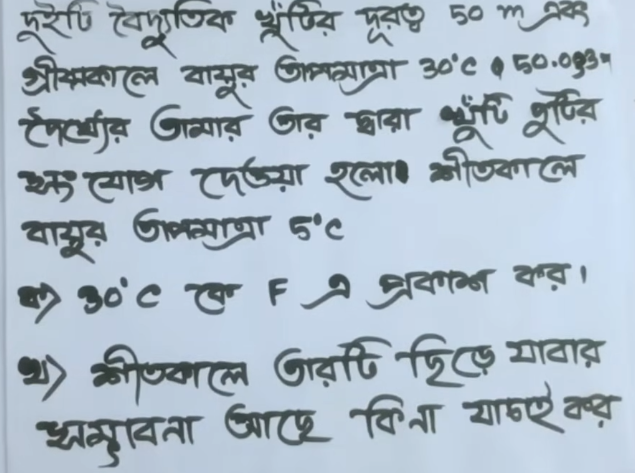 দুইটি বৈদ্যুতিক খুঁটির দূরত্ব 50 m এবং
গ্রীষ্মকালে বায়ুর তাপমাত্রা 30°C
দৈর্ঘ্যের তামার তার দ্বারা খুঁটি দুটির
সংযোগ দেওয়া হলো। শীতকালে
বায়ুর তাপমাত্রা 5°C
ক) 30°C কে F এ প্রকাশ কর।
খ) শীতকালে তারটি ছিড়ে যাবার
সম্ভাবনা আছে কিনা যাচাই কর